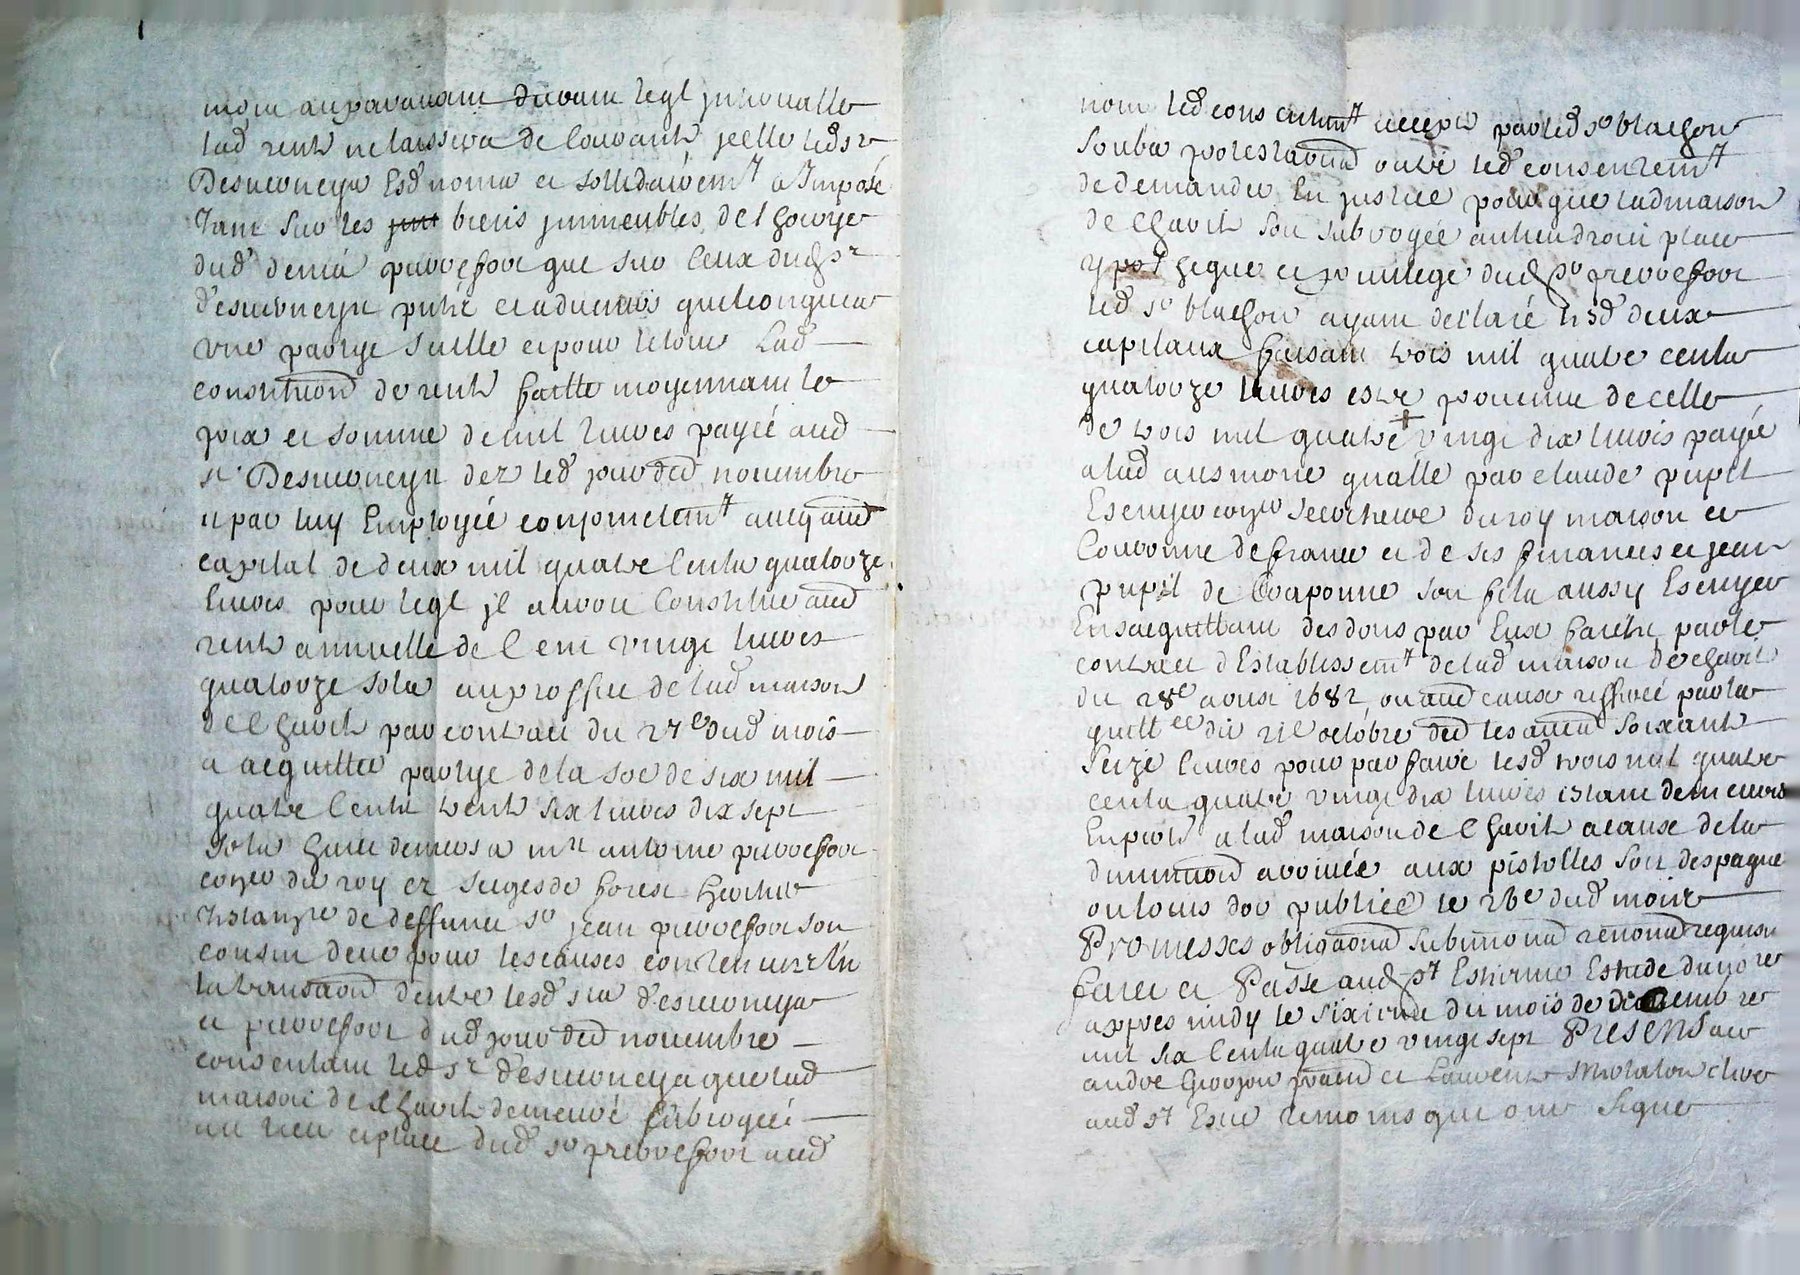 mois auparavant devant lequel intervalle
lad rente ne laissera de courante icelle led sr
Desmoneyx esd noms et sollidairemt a Imposé
tant sur les biens immeubles de l'hoirye
dud deniá pierrefort que sur ceux dud sr
desmoneyx et adverris quelconques
une partye seulle et pour le tout Lad
constituon de rente faitte moyennant le
prix et somme de mil livres payéé aud
sr Desmoneyx dez led jour dud novembre
et par luy Employéé conjoinctemt
capital de deux mil quatre Cents quatorze
livres pour lequel il auroit Constitué aud
rente annuelle de Cent vingt livres
quatorze sols au proffict de lad maison
de Charité par contract du 27e dud mois
a acquitter partye de la soe de six mil
quatre Cents trente six livres dix sept
sols deue a mre antoine pierrefort
coner du roy et de forest heritier
de deffunct sr jean pierrefort son
cousin deue pour les causes contenues En
la transaction d'entre lesd srs desmoneyx
et pierrefort dud jour dud novembre
consentant led sr desmoneyx que lad
maison de Charité demeure subrogéé
au lieu et place dud sr pierrefort aud
nom led consentemt accepté par led sr blachon
soubz protestaon outre led consentemt
de demander En justice pour que lad maison
de Charité soit subrogéé au lieu droict place
ypotheque et privilege dud sr pierrefort
led sr blachon ayant declaré lesd deux
capitaux faisant trois mil quatre cents
quatorze livres estre provenue de celle
de trois mil quatre vingt dix livres payéé
a lad ausmone par claude pupil
Escuyer coner secretaire du roy maison et
Couronne de france et de ses finances et jean
pupil de Craponne son fils aussy Escuyer
En acquittant des dons par Eux faicts par le
contract d'Establissemt de lad maison de charité
du 28e aoust 1682
quittce du 21e octobre dud soixante
seize livres pour parfaire lesd trois mil quatre
cents quatre vingt dix livres estant demeurés
En perte a lad maison de Charité a cause de la
diminuon arrivéé aux pistolles soit despagne
ou louis d'or publiéé le 26e dud mois
Promesses obligaons submissions renonaons requises
faict et Passé aud st Estienne Estude du nore
appres midy le sixieme du mois de decembre
mil six Cents quatre vingt sept Presens sr
andré Groujon et Laurent clerc
aud st Estie temoins qui ont signé